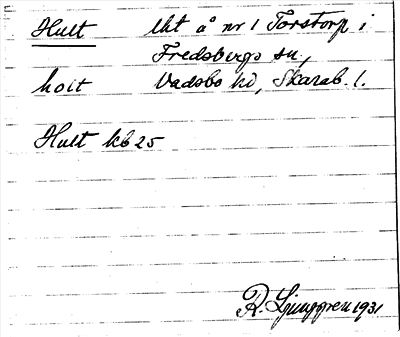 Hult lht å nr 1 Torstorp i
Fredsbergs sn,
holt Vadsbo hd, Skarab. l.
Hult kb 25
R. Ljunggren 1931